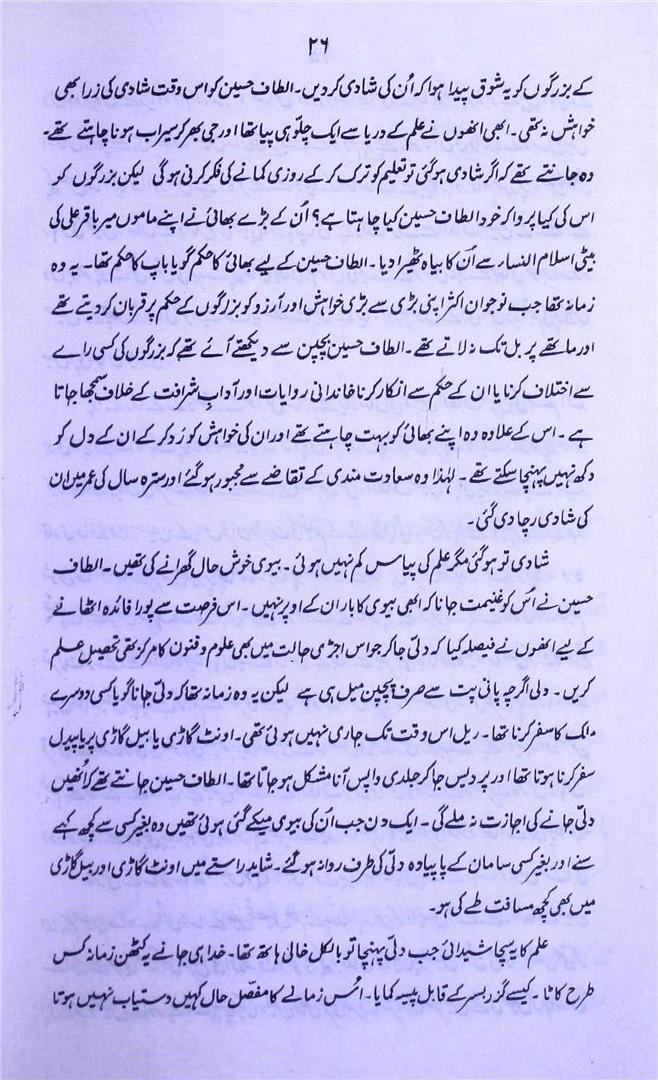 ۲۶
کے بزرگوں کو یہ شوق پیدا ہوا کہ اُن کی شادی کر دیں۔ الطاف حسین کو اس وقت شادی کی ذرا بھی
خواہش نہ تھی۔ ابھی انھوں نے علم کے دریا سے ایک چلّو ہی پیا تھا اور جی بھر کر سیراب ہونا چاہتے تھے۔
وہ جانتے تھے کہ اگر شادی ہو گئی تو تعلیم کو ترک کر کے روزی کمانے کی فکر کرنی ہو گی لیکن بزرگوں کو
اس کی کیا پروا کہ خود الطاف حسین کیا چاہتا ہے؟ اُن کے بڑے بھائی نے اپنے ماموں میر باقر علی کی
بیٹی اسلام النساء سے اُن کا بیاہ ٹھیرا دیا۔ الطاف حسین کے لیے بھائی کا حکم گویا باپ کا حکم تھا۔ یہ وہ
زمانہ تھا جب نوجوان اکثر اپنی بڑی سے بڑی خواہش اور آرزو کو بزرگوں کے حکم پر قربان کر دیتے تھے
اور ماتھے پر بل تک نہ لاتے تھے۔ الطاف حسین بچپن سے دیکھتے آئے تھے کہ بزرگوں کی کسی رائے
سے اختلاف کرنا یا ان کے حکم سے انکار کرنا خاندانی روایات اور آدابِ شرافت کے خلاف سمجھا جاتا
ہے۔ اس کے علاوہ وہ اپنے بھائی کو بہت چاہتے تھے اور ان کی خواہش کو رَد کر کے ان کے دل کو
دکھ نہیں پہنچا سکتے تھے۔ لہٰذا وہ سعادت مندی کے تقاضے سے مجبور ہو گئے اور سترہ سال کی عمر میں ان
کی شادی رچا دی گئی۔
شادی تو ہو گئی مگر علم کی پیاس کم نہیں ہوئی۔ بیوی خوش حال گھرانے کی تھیں۔ الطاف
حسین نے اس کو غنیمت جانا کہ ابھی بیوی کا بار ان کے اوپر نہیں۔ اس فرصت سے پورا فائدہ اٹھانے
کے لیے انھوں نے فیصلہ کیا کہ دلّی جا کر جو اس اجڑی حالت میں بھی علوم و فنون کا مرکز تھی تحصیل علم
کریں۔ دلی اگرچہ پانی پت سے صرف پچپن میل ہی ہے لیکن یہ وہ زمانہ تھا کہ دلّی جانا گویا کسی دوسرے
ملک کا سفر کرنا تھا۔ ریل اس وقت تک جاری نہیں ہوئی تھی۔ اونٹ گاڑی یا بیل گاڑی پر یا پیدل
سفر کرنا ہوتا تھا اور پردیس جا کر جلدی واپس آنا مشکل ہو جاتا تھا۔ الطاف حسین جانتے تھے کہ انھیں
دلّی جانے کی اجازت نہ ملے گی۔ ایک دن جب اُن کی بیوی میکے گئی ہوئی تھیں وہ بغیر کسی سے کچھ کہے
سنے اور بغیر کسی سامان کے پا پیادہ دلّی کی طرف روانہ ہو گئے۔ شاید راستے میں اونٹ گاڑی اور بیل گاڑی
میں بھی کچھ مسافت طے کی ہو۔
علم کا یہ سچا شیدائی جب دلّی پہنچا تو بالکل خالی ہاتھ تھا۔ خدا ہی جانے یہ کٹھن زمانہ کس
طرح کاٹا۔ کیسے گزر بسر کے قابل پیسہ کمایا۔ اُس زمانے کا مفصّل حال کہیں دستیاب نہیں ہوتا